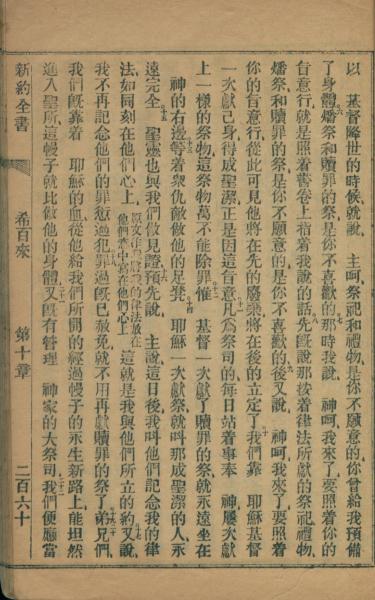 以　基督降世的時候就說　主呵祭祀和禮物是你不願意的你曾給我預備
了身體燔祭和贖罪的祭是你不喜歡的那時我說　神呵我來了要照着你的
旨意行就是照着舊卷上指着我說的話先旣說那按着律法所獻的祭祀禮物
燔祭和贖罪的祭是你不願意的是你不喜歡的後又說　神呵我來了要照着
你的旨意行從此可見他將在先的廢棄將在後的立定了我們靠　耶穌基督
一次獻己身得成聖潔正是因這旨意凡爲祭司的每日站着事奉　神屢次獻
上一樣的祭物這祭物萬不能除罪惟　基督一次獻了贖罪的祭就永遠坐在
神的右邊等着衆仇敵做他的足凳　耶穌一次獻祭就叫那成聖潔的人永
遠完全　聖靈也與我們做見證預先說　主說這日後我叫他們記念我的律
法如同刻在他們心上　的律法放在他們意中寫在他們心上　這就是我與他們所立的約又說
我不再記念他們的罪愆過犯罪過旣已赦免就不用再獻贖罪的祭了弟兄們
我們旣靠着　耶穌的血從他給我們所開的經過幔子的永生新路上能坦然
進入聖所這幔子就比做他的身體又旣有管理　神家的大祭司我們便應當
新約全書
希百來
第十章
二百六十